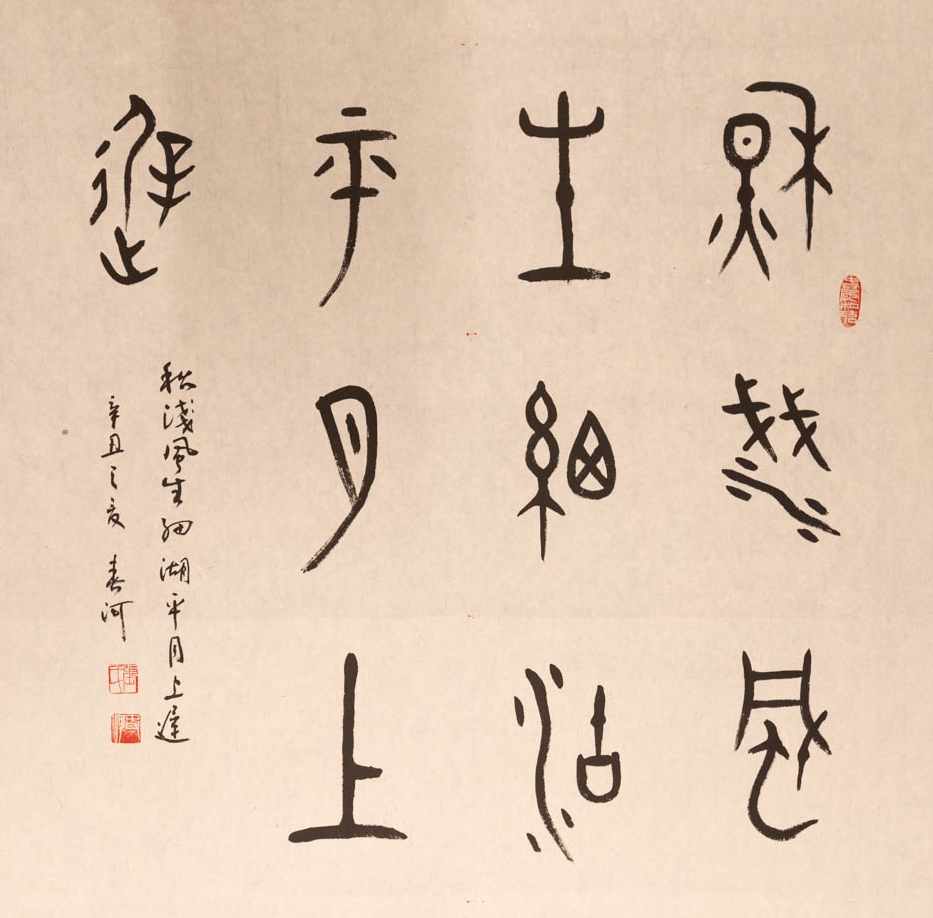 秋淺風
生細湖
平月上
遲
秋淺風生細湖平月上遲
辛丑之夏 春河